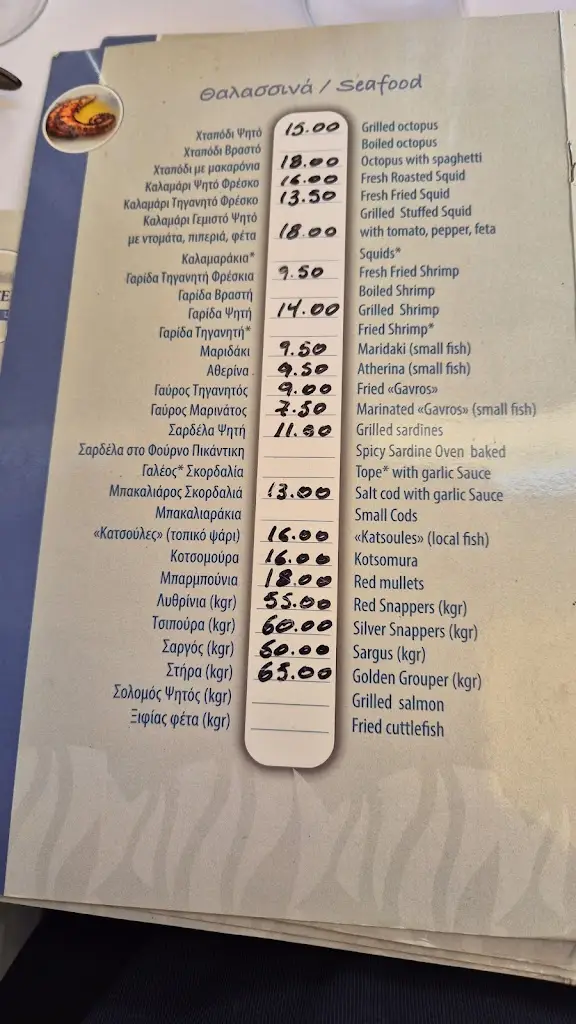 Θαλασσινά / Seafood
Χταπόδι Ψητό 15.00 Grilled octopus
Χταπόδι Βραστό Boiled octopus
Χταπόδι με μακαρόνια 18.00 Octopus with spaghetti
Καλαμάρι Ψητό Φρέσκο 16.00 Fresh Roasted Squid
Καλαμάρι Τηγανητό Φρέσκο 13.50 Fresh Fried Squid
Καλαμάρι Γεμιστό Ψητό Grilled Stuffed Squid
με ντομάτα, πιπεριά, φέτα 18.00 with tomato, pepper, feta
Καλαμαράκια* Squids*
Γαρίδα Τηγανητή Φρέσκια 9.50 Fresh Fried Shrimp
Γαρίδα Βραστή Boiled Shrimp
Γαρίδα Ψητή 14.00 Grilled Shrimp
Γαρίδα Τηγανητή* Fried Shrimp*
Μαριδάκι 9.50 Maridaki (small fish)
Αθερίνα 9.50 Atherina (small fish)
Γαύρος Τηγανητός 9.00 Fried «Gavros»
Γαύρος Μαρινάτος 7.50 Marinated «Gavros» (small fish)
Σαρδέλα Ψητή 11.00 Grilled sardines
Σαρδέλα στο Φούρνο Πικάντικη Spicy Sardine Oven baked
Γαλέος* Σκορδαλία Tope* with garlic Sauce
Μπακαλιάρος Σκορδαλιά 13.00 Salt cod with garlic Sauce
Μπακαλιαράκια Small Cods
«Κατσούλες» (τοπικό ψάρι) 16.00 «Katsoules» (local fish)
Κοτσομούρα 16.00 Kotsomura
Μπαρμπούνια 18.00 Red mullets
Λυθρίνια (kgr) 55.00 Red Snappers (kgr)
Τσιπούρα (kgr) 60.00 Silver Snappers (kgr)
Σαργός (kgr) 60.00 Sargus (kgr)
Στήρα (kgr) 65.00 Golden Grouper (kgr)
Σολομός Ψητός (kgr) Grilled salmon
Ξιφίας φέτα (kgr) Fried cuttlefish